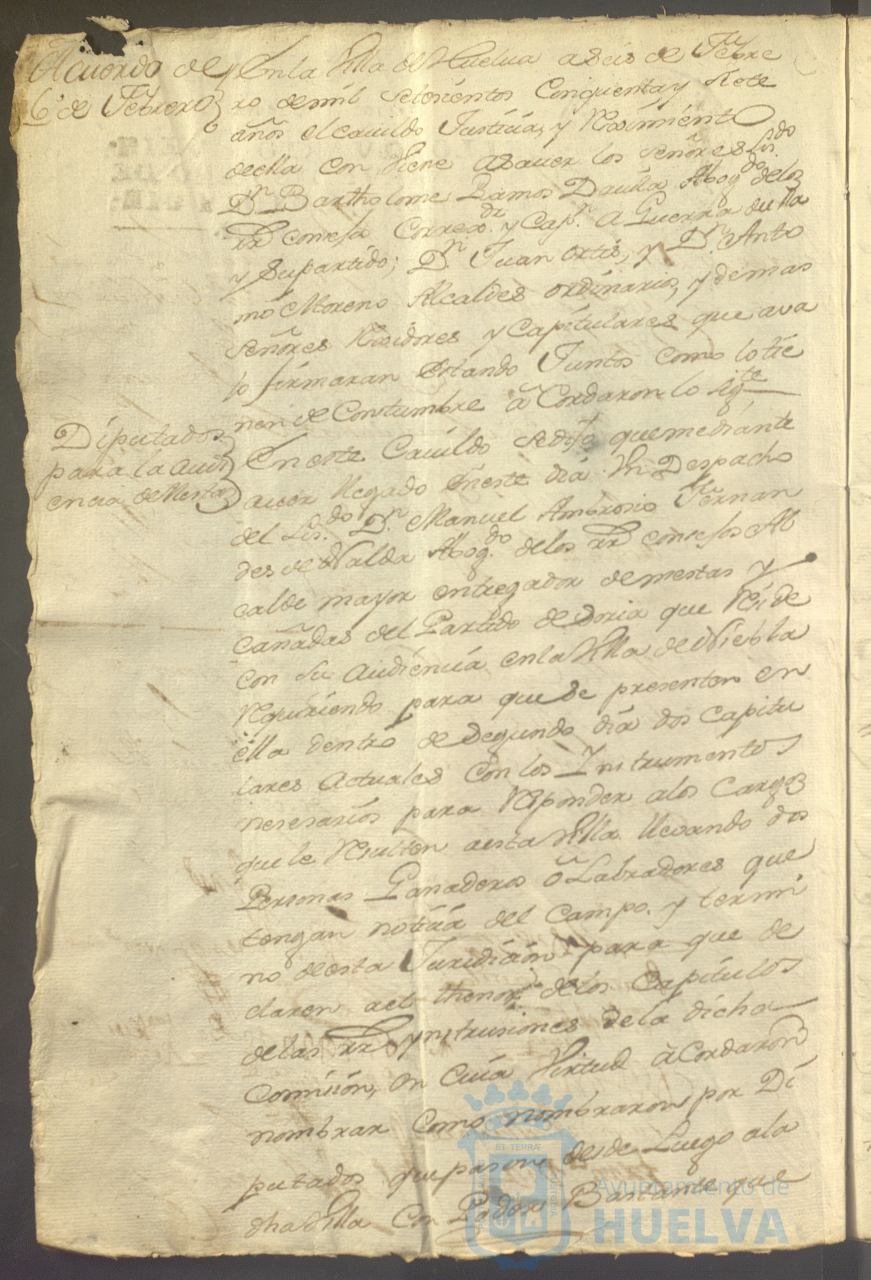 Acuerdo de
6 de Febrero
En la Villa de Huelua a seis de Febre
ro de mil setesientos Cinquenta y Siete
años el cauildo Justicia, y Reximiento
de ella con Viene a sauer los señores Lisdo
Dn Bartholome Ramos Dauila Abogdo de los
RRs consejos Correxor y Capn a Guerra de ella
y su partido; Dn Juan Ortis, y Dn Anto
nio Moreno Alcaldes ordinarios, y demas
Señores Rexidores y Capitulares que aua
jo firmaran Estando Juntos como lo tie
nen de Constumbre aCordaron lo sigte
Diputados
para la Audi
encia de Mesta
En este Cauildo se dijo que mediante
auer llegado en este dia Un Despacho
del Lisdo Dn Manuel Ambrosio Fernan
des de Valda Abogdo de los RRs consejos Al
calde mayor entregador de mestas y
cañadas del Partido de Soria que Reside
con su Audiencia en la Villa de Niebla
Requiriendo para que se presenten en
ella dentro de Segundo dia dos Capitu
lares actuales con los Instrumentos
nesesarios para Responder a los Cargos
que le Resulten a esta Villa lleuando dos
Personas Ganaderos o Labradores que
tengan notisia del Campo y termi
no de esta Jurisdicion para que de
claren a el thenor de los Capitulos
de las RRs ynstrusiones de la dicha
Comision, en Cuia Virtud aCordaron
nombrar como nombraron por Di
putados que pasen desde Luego a la
dha Villa Con Poder Bastante que
ET TERRÆ
Ayuntamiento de
HUELVA